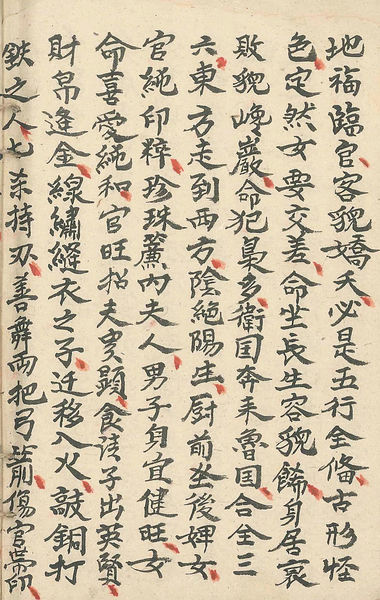 地福臨官客貌嬌夭必是五行全俻古形怪
色定然女要交差命坐長生容貌餙身居衰
敗貌巉巖命犯梟多衛囯奔来魯囯合住三
六東方走到西方陰絕陽生厨前坐後婢女
官純印粹珍珠簾内夫人男子身宜健旺女
命喜愛純和官旺招夫更顕食清子出英賢
財帛逢金線繡縫衣之子迁移入火敲銅打
鉄之人七杀持刃善舞两把弓箭傷官帶印